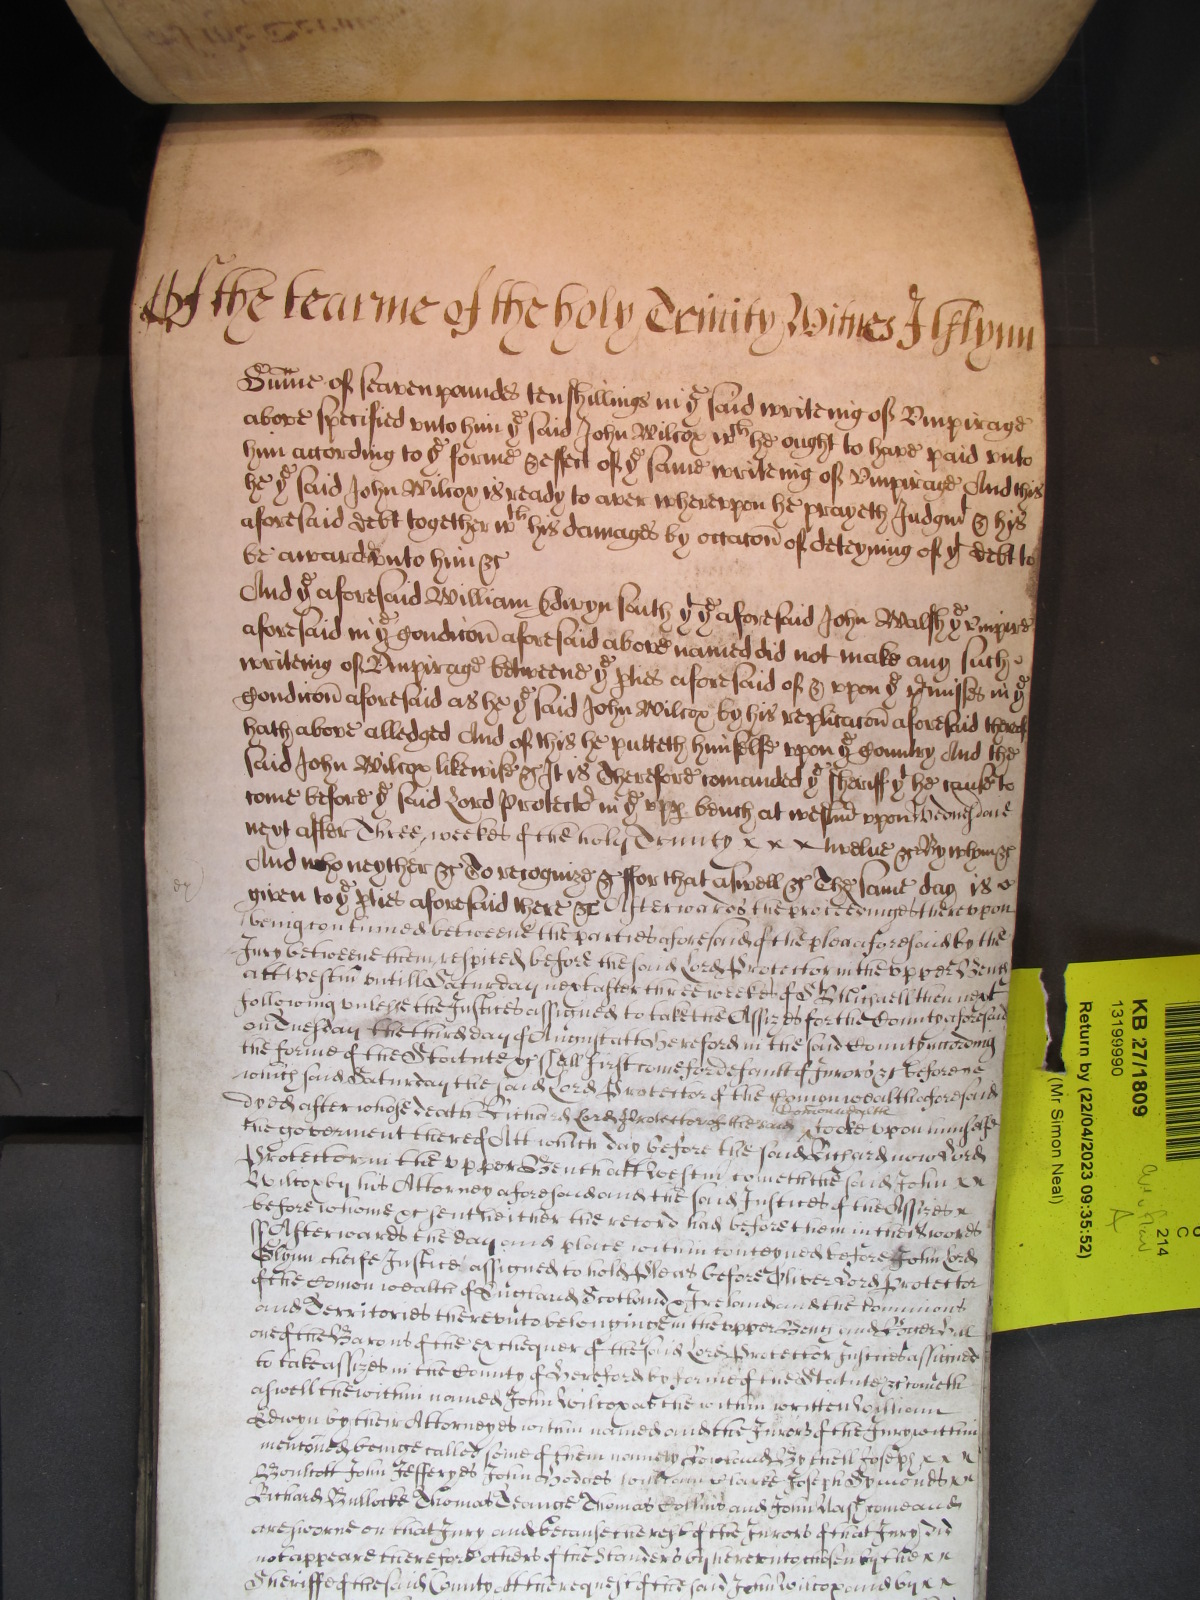 Of the tearme of the holy Trinity Witnes J Glynn
Sum̄e of seaven poundes ten shillings in yᵉ said writeing of Vmpirage
above specified vnto him yᵉ said John Wilcox wᶜʰ he ought to have paid vnto
him according to yᵉ forme & effect of yᵉ same writeing of Vmpirage And this
he yᵉ said John Wilcox is ready to aver wherevpon he prayeth Judgmᵗ & his
aforesaid debt together wᵗʰ his damages by occac̄on of deteyning of yᵗ debt to
be awarded vnto him &c
And yᵉ aforesaid William Edwyn saith yᵗ yᵉ aforesaid John Walsh yᵉ vmpire
aforesaid in yᵉ Condic̄on aforesaid above named did not make any such
writeing of Vmpirage betweene yᵉ p̱ties aforesaid of & vpon yᵉ p̱misses in yᵉ
Condic̄on aforesaid as he yᵉ said John Wilcox by his replicac̄on aforesaid thereof
hath above alledged And of this he putteth himselfe vpon yᵉ Country And the
said John Wilcox likewise &c It is Therefore comanded yᵉ sheriff yᵗ he cause to
come before yᵉ said Lord Protectoʳ in yᵉ vpp̱ bench at westmʳ vpon Wednesdaie
next after Three weekes of the holy Trinity x x x twelve &c By whom &c
And who neyther &c To recognize &c ffor that aswell &c The same day is
given to yᵉ p̱ties aforesaid there &c Afterwards the proceedinges therevpon
ex
being continued betweene the parties aforesaid of the plea aforesaid by the
Jury betweene them respited before the said Lord Protector in the vpper Bench
att Westm̄ vntill Saturday next after three weekes of Sᵗ Michaell then next
following vnlesse the Justices assigned to take the Assizes for the County aforesaid
on Tuesday the third day of August att Hereford in the said County according
the forme of the Statute &c shall first come for default of Jurors &c before
which said Saturday the said Lord Protector of the Comonwealth aforesaid
Comonwealth
dyed after whose death Richard Lord Protector of the said tooke vpon himselfe
the goverment thereof Att which day before the said Richard now Lord
Protector in the vpper Bench att Westm̄ cometh the said John x x
Wilcox by his Attorney aforesaid and the said Justices of the Assizes x
before whome &c sent hither the record had before them in these words
ss Afterwards the day and place within conteyned before John Lord
Glynn cheife Justice assigned to hold Pleas before Oliver Lord Protector
of the Comon wealth of England Scotland & Ireland and the Dominions
and Territories therevnto belonginge in the vpper Bench and
one of the Barons of the exchequer of the said Lord Protector Justices assigned
to take assizes in the County of Hereford by forme of the Statute &c cometh
aswell the within named John Wilcox as the within written William
Edwyn by their Attorneyes within named and the Jurors of the Jury within
menc̄oned beinge called some of them namely Rowland Bythell Joseph x x x
Boulcott John Jefferyes John Hodges William Clarke Joseph Symonds x x
Richard Bullocke Thomas Thomas Collins and John Nash come and
are sworne on that Jury and because the rest of the Jurors of that Jury did
not appeare therefore others of the Standers by herevnto chosen by the x x
Sheriffe of the said County att the request of the said John Wilcox and by x x
KB 27/1809
13199990
Return by (22/04/2023 09:35:52)
(Mr Simon Neal)
214
C
A